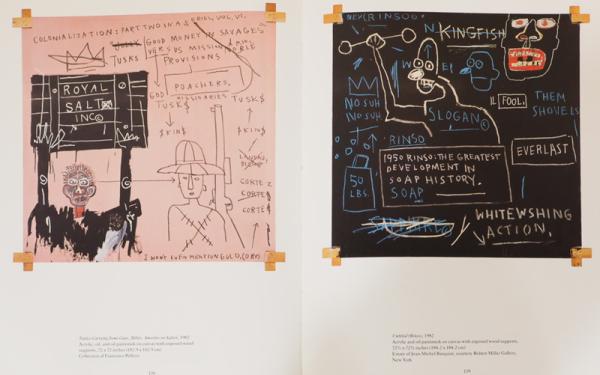 COLONIALIZATION: PART TWO IN A SERIES, VOL. VI.
GOOD MONEY IN SAVAGES
TUSKS
VERSUS MISSIONARIES
PROVISIONS
POACHERS,
GOD
MISSIONARIES
TUSK$
TUSK$
$KIN$
$KIN$
ROYAL
SALT
INC©
CORTEZ
CORTE
CORTE
I WONT EVEN MENTION GOLD, (ORO)
RINSO
KINGFISH
N
W
E
NO SUH
NO SUH
SLOGAN©
FOOL.
THEM
SHOVELS
RINSO
1950 RINSO: THE GREATEST
DEVELOPMENT IN
SOAP HISTORY.
SOAP
EVERLAST
50
LBS.
WHITEWSHING
ACTION.
1982
Acrylic, oil, and oil paintstick on canvas with exposed wood
supports, 72 x 72 inches (182.9 x 182.9 cm)
Collection of Francesco Pellizzi
Untitled (Rinso), 1982
Acrylic and oil paintstick on canvas with exposed wood supports,
Estate of Jean-Michel Basquiat, courtesy Robert Miller Gallery,
New York